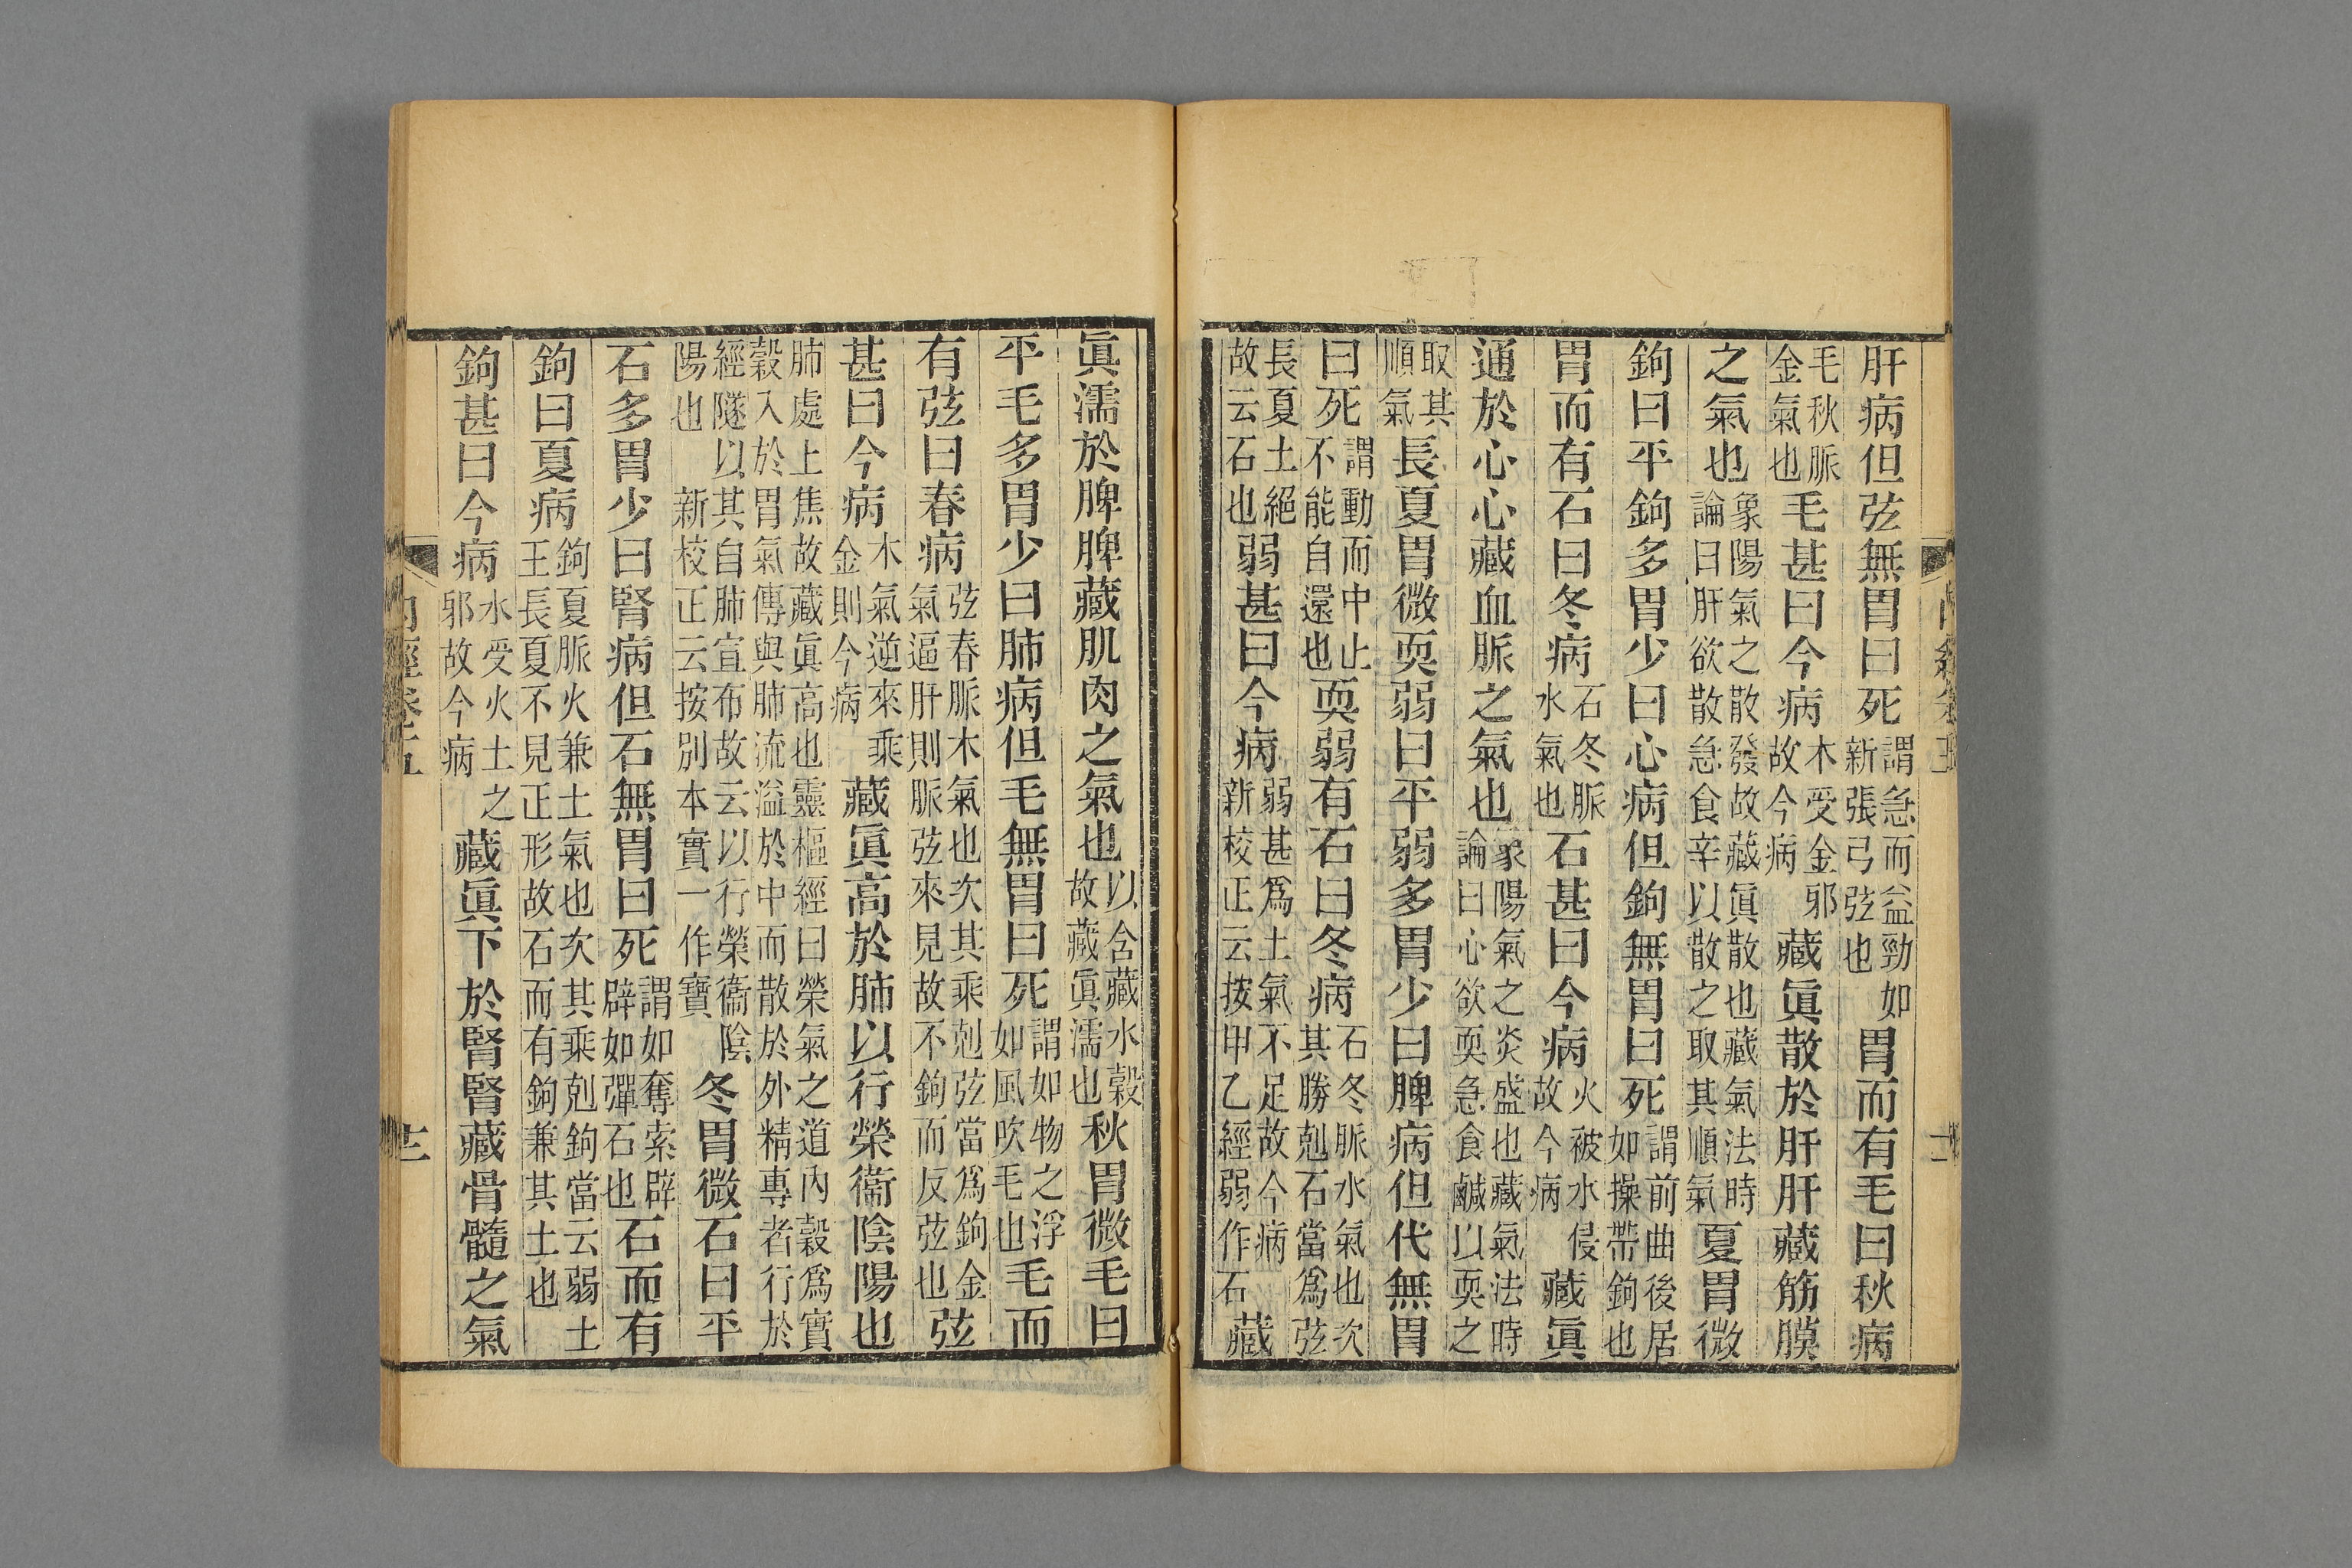 肝病但弦無胃曰死謂急而益勁如新張弓弦也胃而有毛曰秋病
毛秋脈金氣也毛甚曰今病木受金邪故今病藏眞散於肝肝藏筋膜
之氣也象陽氣之散發故藏眞散也藏氣法時論曰肝欲散急食辛以散之取其順氣夏胃微
鉤曰平鉤多胃少曰心病但鉤無胃曰死謂前曲後居如操帶鉤也
胃而有石曰冬病石冬脈水氣也石甚曰今病火被水侵故今病藏眞
通於心心藏血脈之氣也象陽氣之炎盛也藏氣法時論曰心欲耎急食鹹以耎之
取其順氣長夏胃微耎弱曰平弱多胃少曰脾病但代無胃
曰死謂動而中止不能自還也耎弱有石曰冬病石冬脈水氣也次其勝剋石當爲弦
長夏土絕故云石也弱甚曰今病弱甚爲土氣不足故今病新校正云按甲乙經弱作石藏
眞濡於脾脾藏肌肉之氣也以含藏水穀故藏眞濡也秋胃微毛曰
平毛多胃少曰肺病但毛無胃曰死謂如物之浮如風吹毛也毛而
有弦曰春病弦春脈木氣也次其乘剋弦當爲鉤金氣逼肝則脈弦來見故不鉤而反弦也弦
甚曰今病木氣逆來乘金則今病藏眞高於肺以行榮衞陰陽也
肺處上焦故藏眞高也靈樞經曰榮氣之道內穀爲實穀入於胃氣傳與肺流溢於中而散於外精專者行於
經隧以其自肺宣布故云以行榮衞陰陽也新校正云按別本實一作寶冬胃微石曰平
石多胃少曰腎病但石無胃曰死謂如奪索辟辟如彈石也石而有
鉤曰夏病鉤夏脈火兼土氣也次其乘剋鉤當云弱土王長夏不見正形故石而有鉤兼其土也
鉤甚曰今病水受火土之邪故今病藏眞下於腎腎藏骨髓之氣
內經卷五